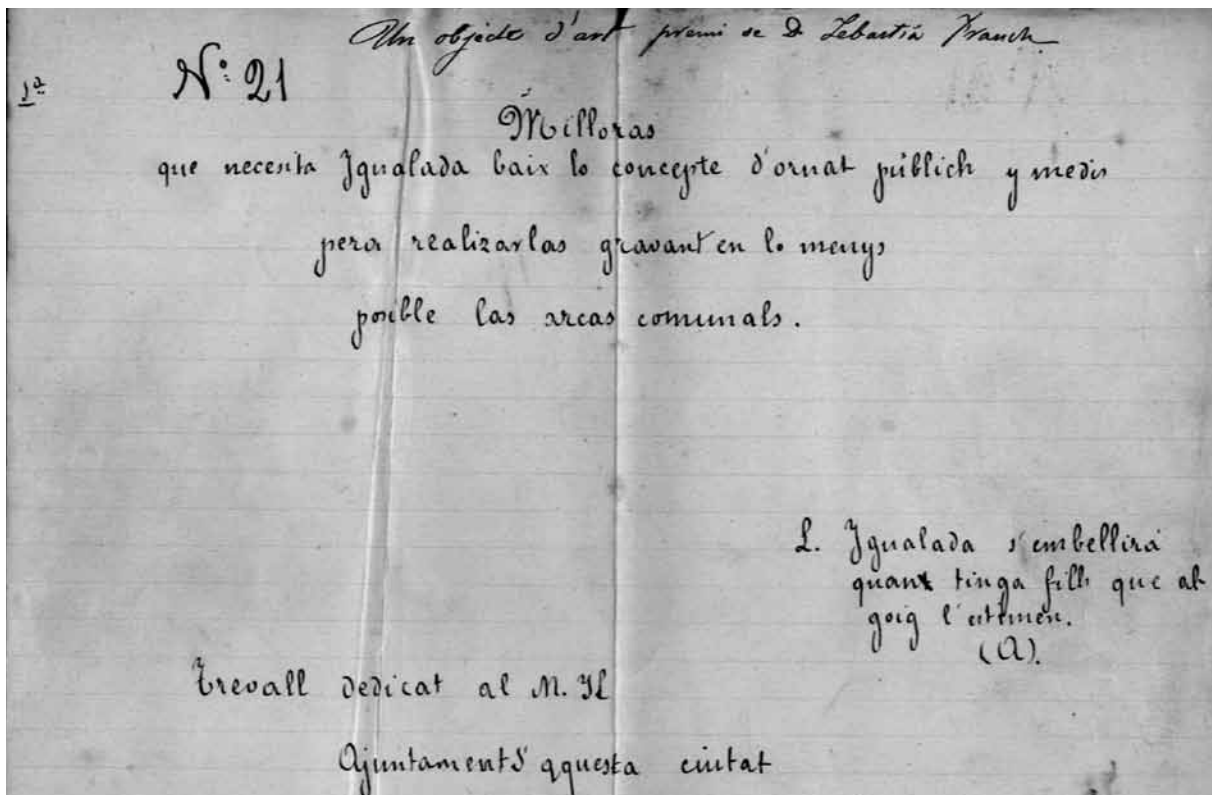 Un objecte d'art premi de D. Sebastiá Franch
1ª
Nº 21
Milloras
que necesita Igualada baix lo concepte d'ornat públich y medis
pera realizarlas gravant en lo menys
posible las arcas comunals.
L. Igualada s'embellirá
quant tinga fills que ab
goig l'estimen.
(A).
Trevall dedicat al M. Il
Ajuntament d'aquesta ciutat